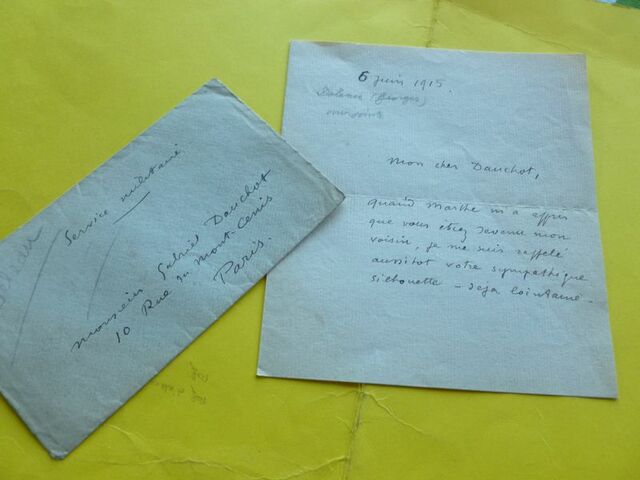 Service militaire
Monsieur Gabriel Dauchot
10 Rue du Mont-Cenis
Paris.
6 Juin 1915.
(Georges)
Mon cher Dauchot,
quand Marthe m'a appris
que vous etiez devenu mon
voisin, je me suis rappelé
aussitot votre sympathique
silhouette - deja lointaine -